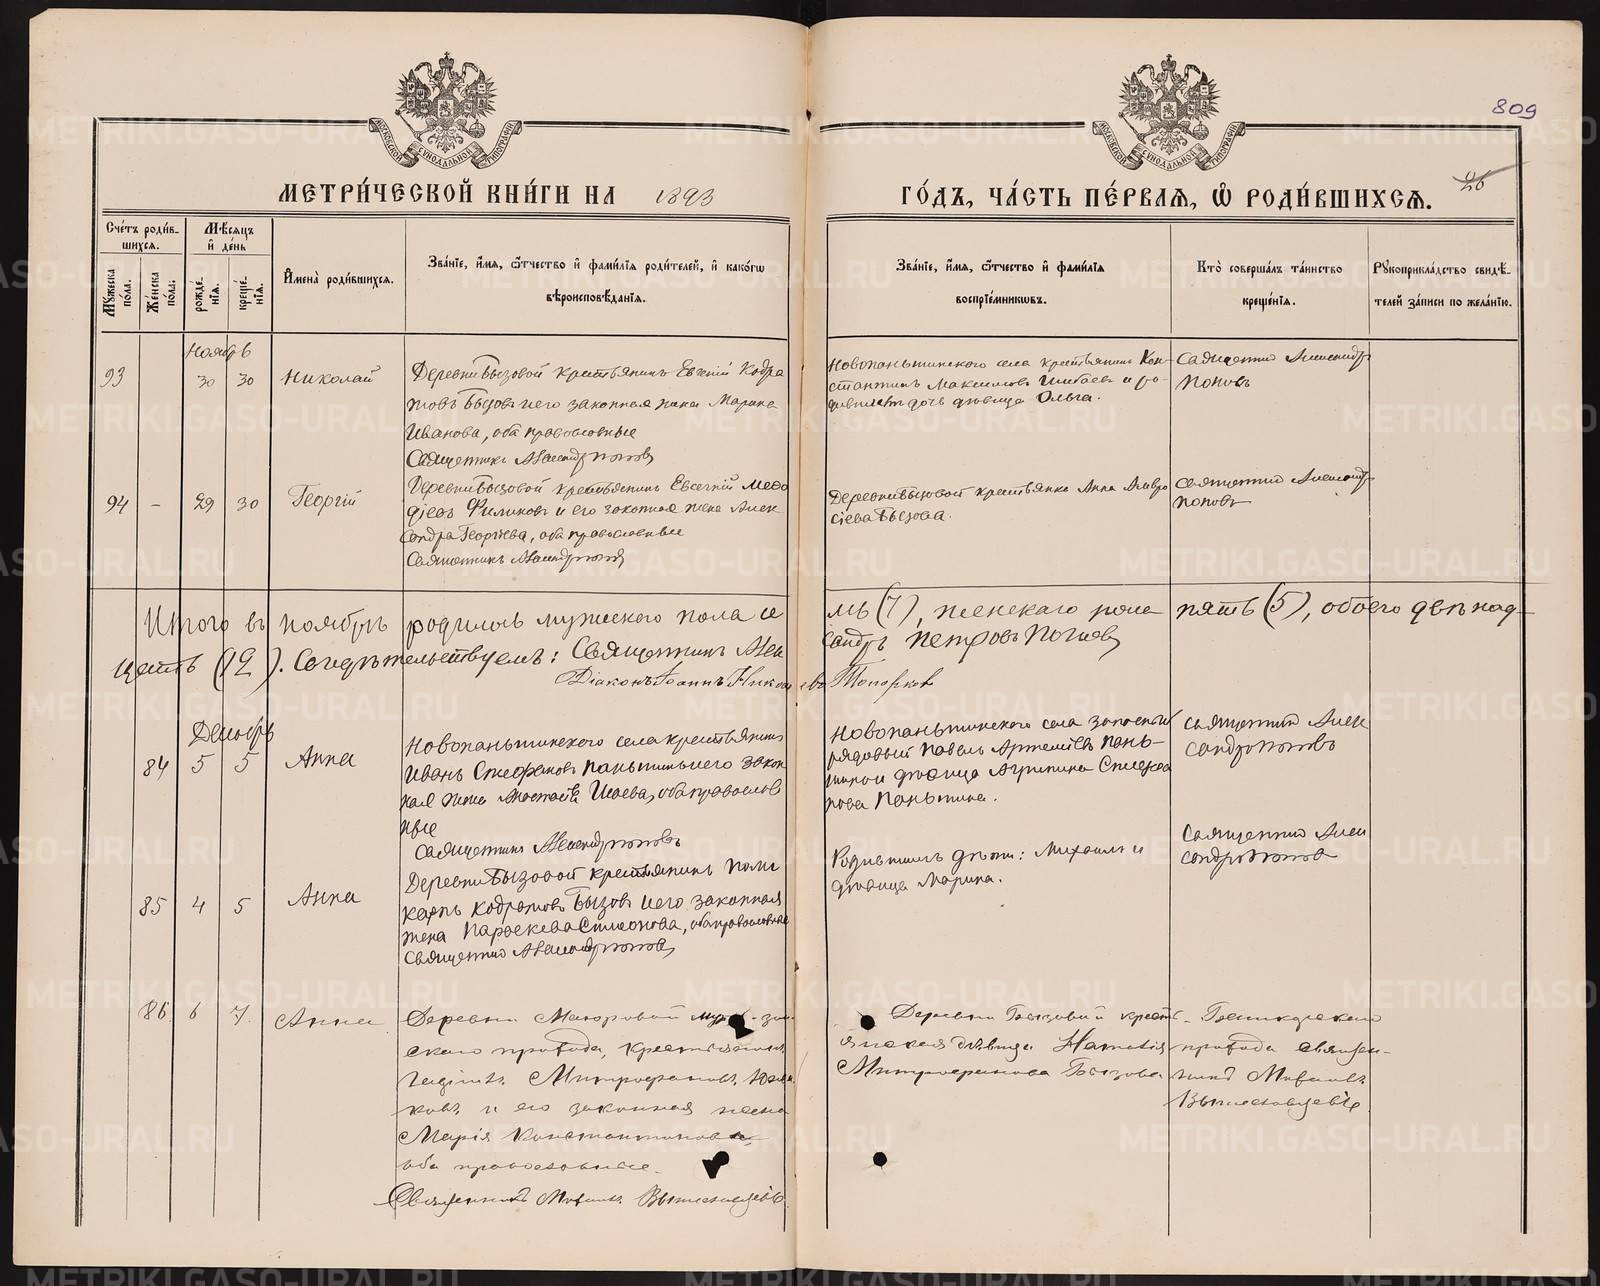 809
26
МОСКОВСКОЙ СѴНОДАЛЬНОЙ ТИПОГРАФІИ
МОСКОВСКОЙ СѴНОДАЛЬНОЙ ТИПОГРАФІИ
МЕТРИ́ЧЕСКОЙ КНИ́ГИ НА 1893
ГО́ДЪ, ЧА́СТЬ ПЕ́РВАѦ, Ѡ҆ РОДИ́ВШИХСѦ.
Сче́тъ роди́в-
шихсѧ.
Мꙋ́жеска по́ла.
Же́нска по́ла.
Мѣ́сѧцъ
и҆ де́нь
рожде́-
нїѧ.
креще́-
нїѧ.
И҆мена̀ роди́вшихсѧ.
Зва́нїе, и҆́мѧ, ѻ҆́тчество и҆ фами́лїѧ роди́телей, и҆ како́гѡ
вѣроисповѣ́данїѧ.
Зва́нїе, и҆́мѧ, ѻ҆́тчество и҆ фами́лїѧ
воспрїе́мникѡвъ.
Кто̀ соверша́лъ та́инство
креще́нїѧ.
Рꙋкоприкла́дство свидѣ́-
телей за́писи по жела́нїю.
Ноябрь
93 30 30 Николай
Деревни Бызовой крестьянинъ Евгеній Кодра
товъ Бызовъ и его законная жена Марина
Иванова, оба православные
Священникъ Александръ Поповъ
Новопаньшинского села крестьянинъ Кон-
стантинъ Максимовъ и ро-
дителей дочь дѣвица Ольга.
Священникъ Александръ
Поповъ
94 – 29 30 Георгій
Деревни Бызовой крестьянинъ Евгеній Мефо
діевъ Филиновъ и его законная жена Алек
сандра Георгіева, оба православные
Священникъ Александръ Поповъ
Деревни Бызовой крестьянка Анна Амвро
сіева Бызова.
Священникъ Александръ
Поповъ
Итого въ ноябрѣ родилось мужескаго пола се
мь (7), женскаго пола пять (5), обоего двѣнад-
цать (12). Свидѣтельствуемъ: Священникъ Алек
сандръ Петровъ Поповъ
Діаконъ Іоаннъ Николаевъ Топорковъ
Декабрь
84 5 5 Анна
Новопаньшинского села крестьянинъ
Иванъ Стефановъ Паньшинъ и его закон
ная жена Исаева, оба православ
ные
Священникъ Александръ Поповъ
Новопаньшинского села запасный
рядовый Павелъ Артеміевъ Пань-
шинъ и дѣвица Агрипина Стефа
нова Паньшина.
Священникъ Алек
сандръ Поповъ
85 4 5 Анна
Деревни Бызовой крестьянинъ Поли
карпъ Кодратовъ Бызовъ и его законная
жена Параскева Симеонова, оба православные
Священникъ Александръ Поповъ
Родившихъ дѣти: Михаилъ и
дѣвица Марина.
Священникъ Алек
сандръ Поповъ
86 6 7 Анна
Деревни Маюровой
скаго прихода, крестьянинъ
Митрофановъ
ковъ и его законная жена
Марія Константинова
оба православные.
Священникъ
Деревни Бызовой кресть-
янская дѣвица Наталія
Митрофанова Бызова
прихода Священ-
никъ
METRIKI.GASO-URAL.RU